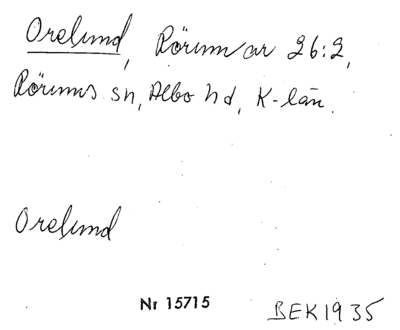 Orelund, Rörum ar 26:2,
Rörums sn, Albo hd, K-län.
Orelund
Nr 15715
BEK1935